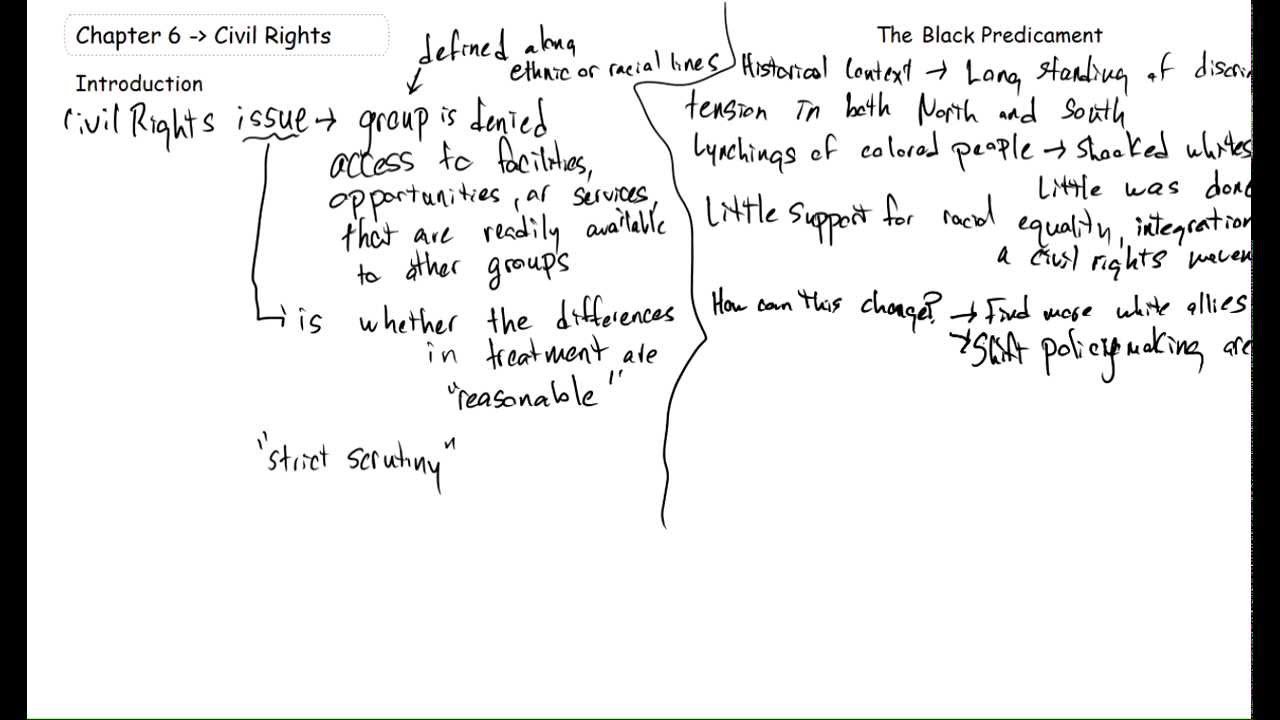 Chapter 6 -> Civil Rights
Introduction
defined along
ethnic or racial lines
Civil Rights issue → group is denied
access to facilities,
opportunities, or services,
that are readily available
to other groups
is whether the differences
in treatment are
"reasonable"
"strict scrutiny"
The Black Predicament
Historical Context → Long standing of discri
tension in both North and South
Lynchings of colored people → shocked whites
Little was done
Little support for racial equality, integration
a civil rights movem
How can this change? → Find more white allies
→ Shift policymaking are